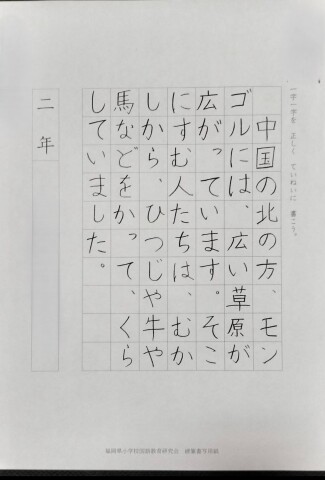 一字一字を 正しく ていねいに 書こう。
中国の北の方、モン
ゴルには、広い草原が
広がっています。そこ
にすむ人たちは、むか
しから、ひつじや牛や
馬などをかって、くら
していました。
二年
福岡県小学校国語教育研究会 硬筆書写用紙